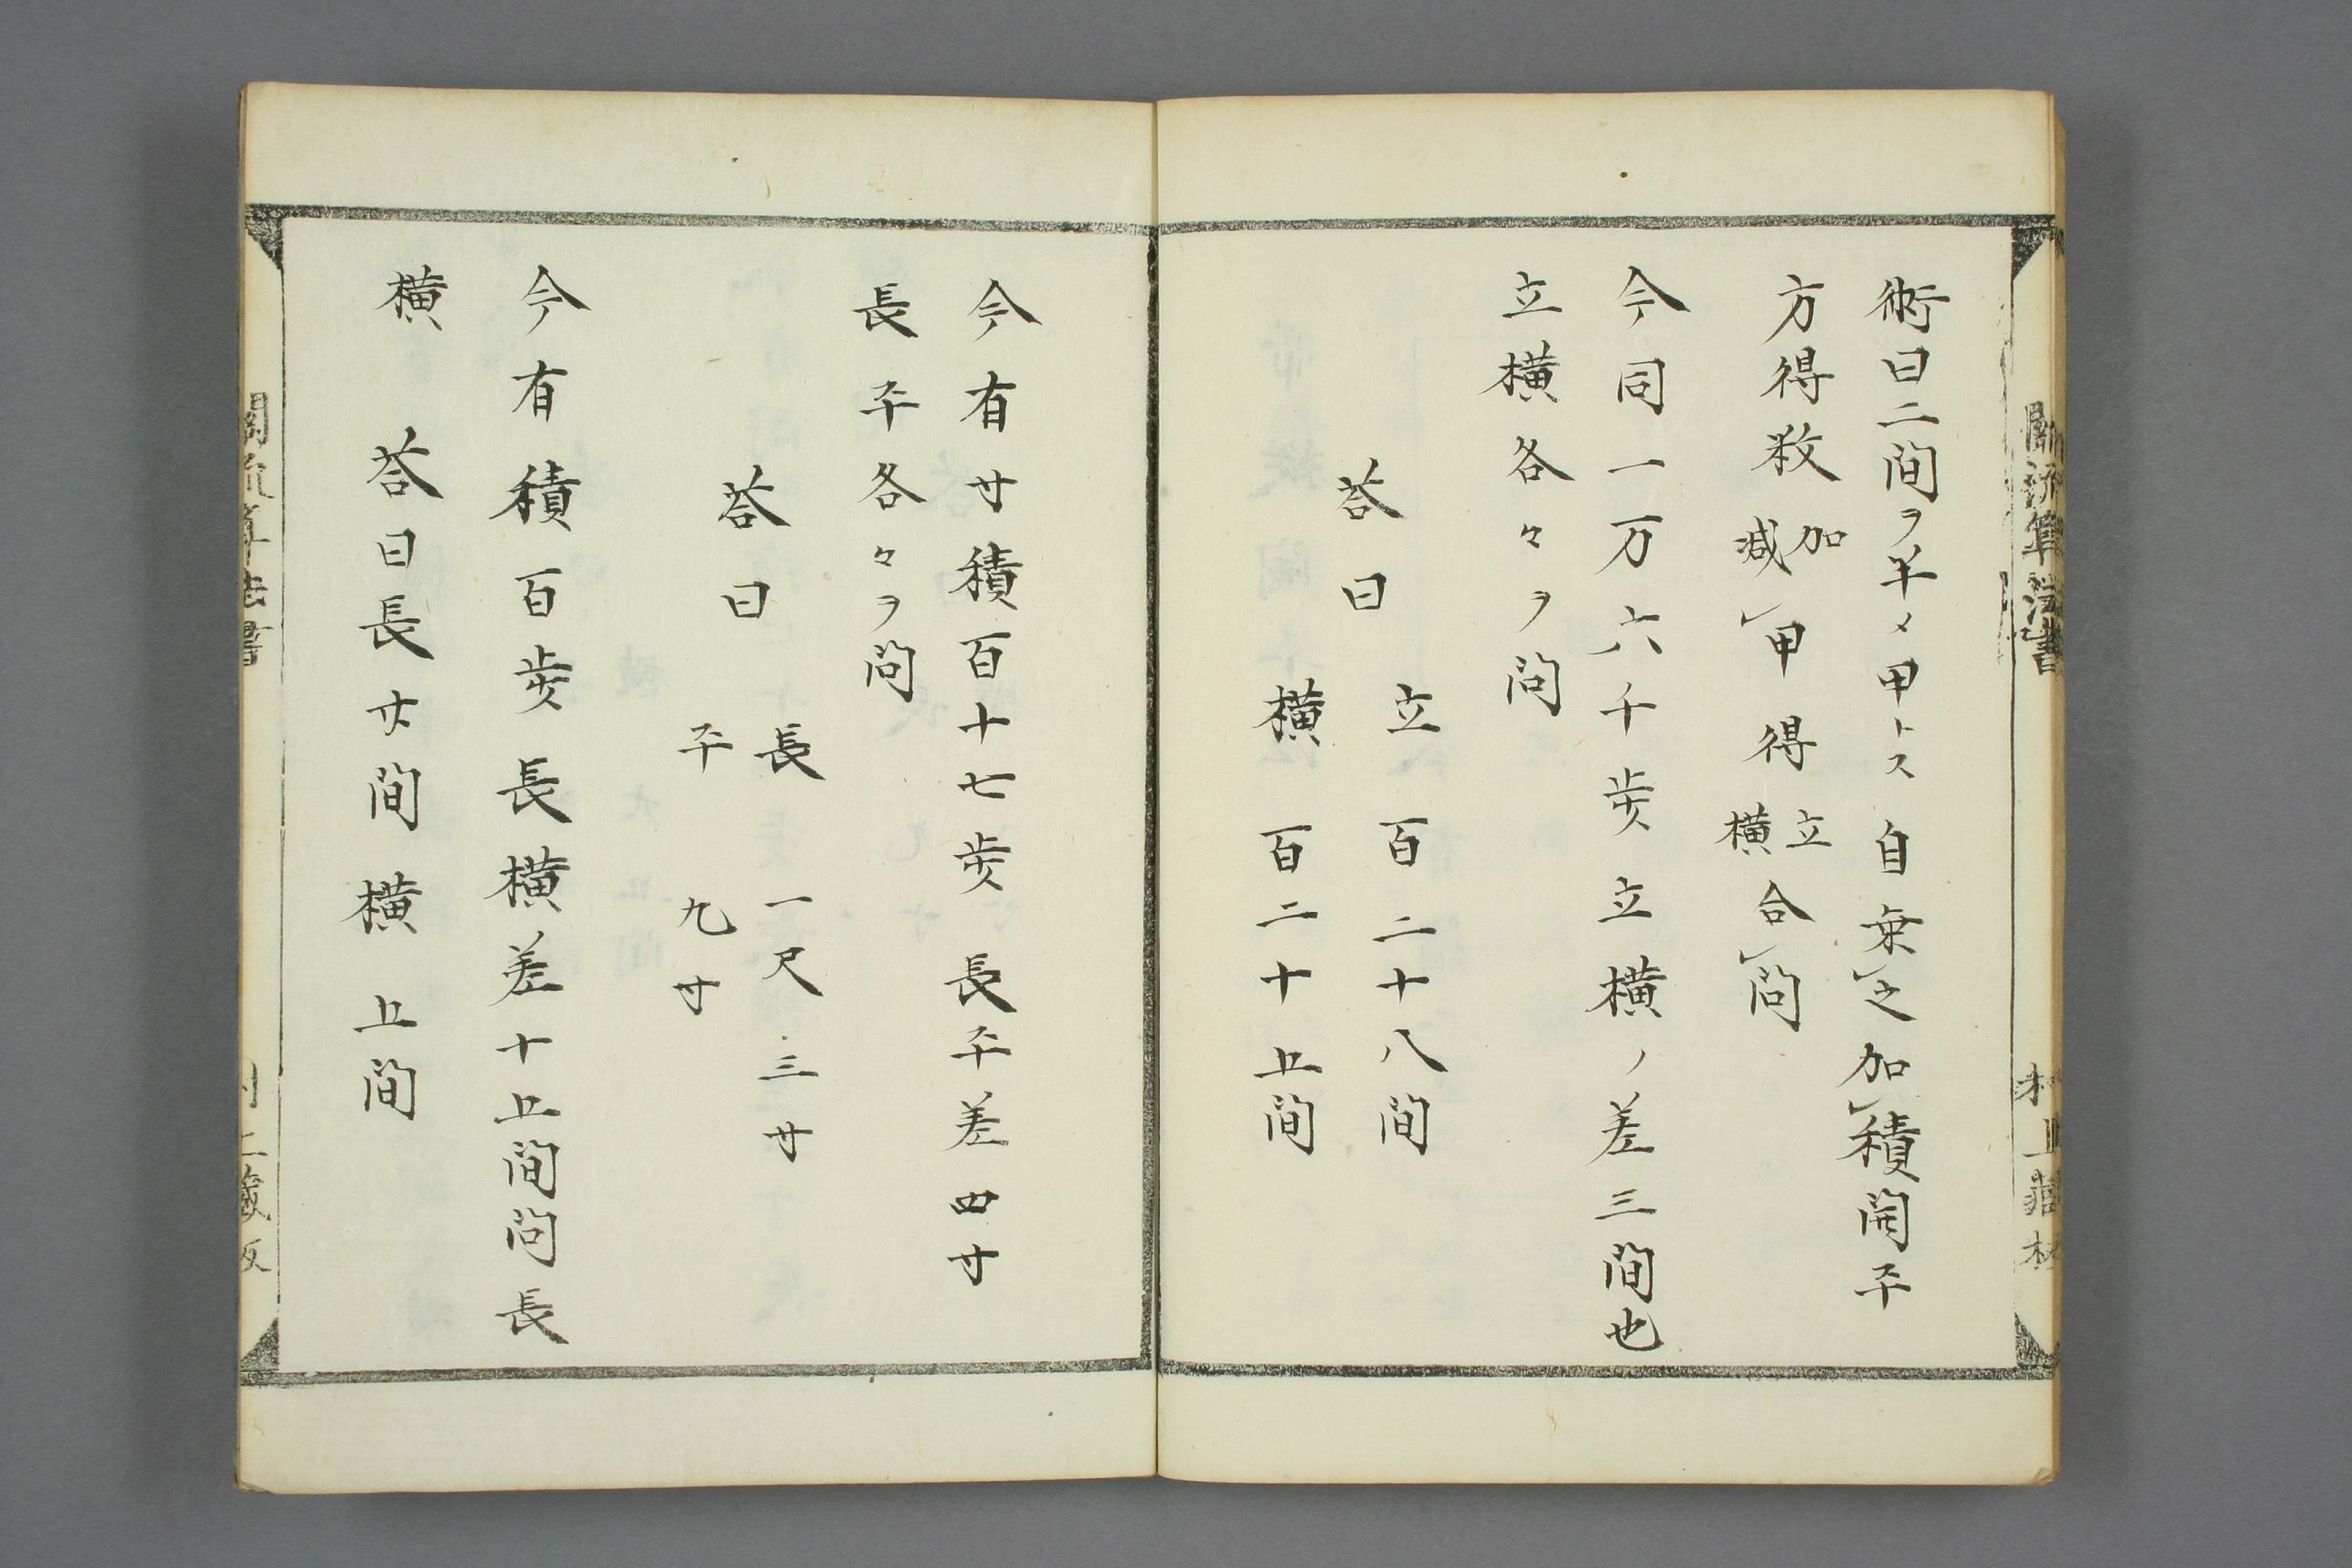 術曰二間ヲ半メ甲トス自乗之加積開平
方得数加減甲得立横合問
今同一万六千歩立横ノ差三間也
立横各々ヲ問
答曰
立百二十八間
横百二十五間
今有寸積百十七歩長平差四寸
長平各々ヲ問
答曰
長一尺三寸
平九寸
今有積百歩長横差十五間問長
横 答曰長廿間横五間
關流算法書
關流算法書